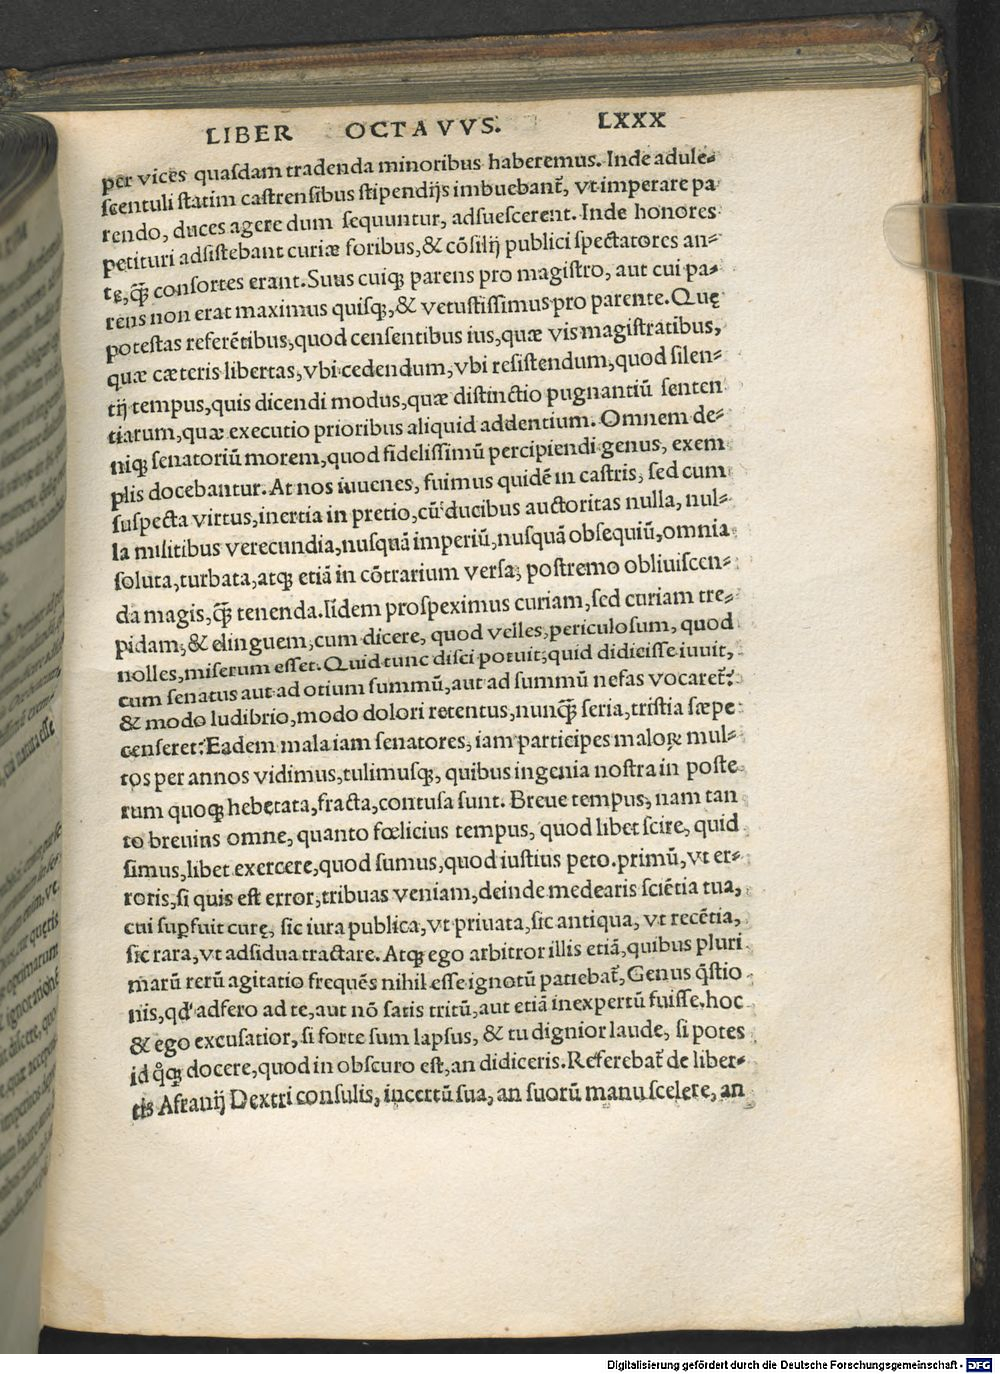 LIBER OCTAVVS. LXXX
per vices quaſdam tradenda minoribus haberemus. Inde adule⸗
ſcentuli ſtatim caſtrenſibus ſtipendijs imbuebant̃, vt imperare pa
rendo, duces agere dum ſequuntur, adſueſcerent. Inde honores
petituri adſiſtebant curiæ foribus, & cõſilij publici ſpectatores an⸗
te, q̃ꝫ conſortes erant. Suus cuiqꝫ parens pro magiſtro, aut cui pa⸗
rens non erat maximus quiſqꝫ, & vetuſtiſſimus pro parente. Quę
poteſtas referẽtibus, quod cenſentibus ius, quæ vis magiſtratibus,
quæ cæteris libertas, vbi cedendum, vbi reſiſtendum, quod ſilen⸗
tij tempus, quis dicendi modus, quæ diſtinctio pugnantiũ ſenten
tiarum, quæ executio prioribus aliquid addentium. Omnem de⸗
niqꝫ ſenatoriũ morem, quod fideliſſimũ percipiendi genus, exem
plis docebantur. At nos iuuenes, fuimus quidẽ in caſtris, ſed cum
ſuſpecta virtus, inertia in pretio, cũ ducibus auctoritas nulla, nul⸗
la militibus verecundia, nuſquã imperiũ, nuſquã obſequiũ, omnia
ſoluta, turbata, atqꝫ etiã in cõtrarium verſa, poſtremo obliuiſcen⸗
da magis, q̃ꝫ tenenda. Iidem proſpeximus curiam, ſed curiam tre⸗
pidam, & elinguem, cum dicere, quod velles, periculoſum, quod
nolles, miſerum eſſet. Quid tunc diſci potuit, quid didiciſſe iuuit,
cum ſenatus aut ad otium ſummũ, aut ad ſummũ nefas vocaret̃?
& modo ludibrio, modo dolori retentus, nunq̃ꝫ ſeria, triſtia ſæpe
cenſeret? Eadem mala iam ſenatores, iam participes maloꝝ mul⸗
tos per annos vidimus, tulimusqꝫ, quibus ingenia noſtra in poſte
rum quoqꝫ hebetata, fracta, contuſa ſunt. Breue tempus, nam tan
to breuius omne, quanto fœlicius tempus, quod libet ſcire, quid
ſimus, libet exercere, quod ſumus, quod iuſtius peto. primũ, vt er⸗
roris, ſi quis eſt error, tribuas veniam, deinde medearis ſciẽtia tua,
cui ſuꝑfuit curę, ſic iura publica, vt priuata, ſic antiqua, vt recẽtia,
ſic rara, vt adſidua tractare. Atqꝫ ego arbitror illis etiã, quibus pluri
marũ rerũ agitatio frequẽs nihil eſſe ignotũ patiebat̃, Genus q̃ſtio
nis, qd' adfero ad te, aut nõ ſatis tritũ, aut etiã inexpertũ fuiſſe, hoc
& ego excuſatior, ſi forte ſum lapſus, & tu dignior laude, ſi potes
id qͦqꝫ docere, quod in obſcuro eſt, an didiceris. Referebat̃ de liber⸗
tis Afranij Dextri conſulis, incertũ ſua, an ſuorũ manu ſcelere, an
Digitalisierung gefördert durch die Deutsche Forschungsgemeinschaft - DFG